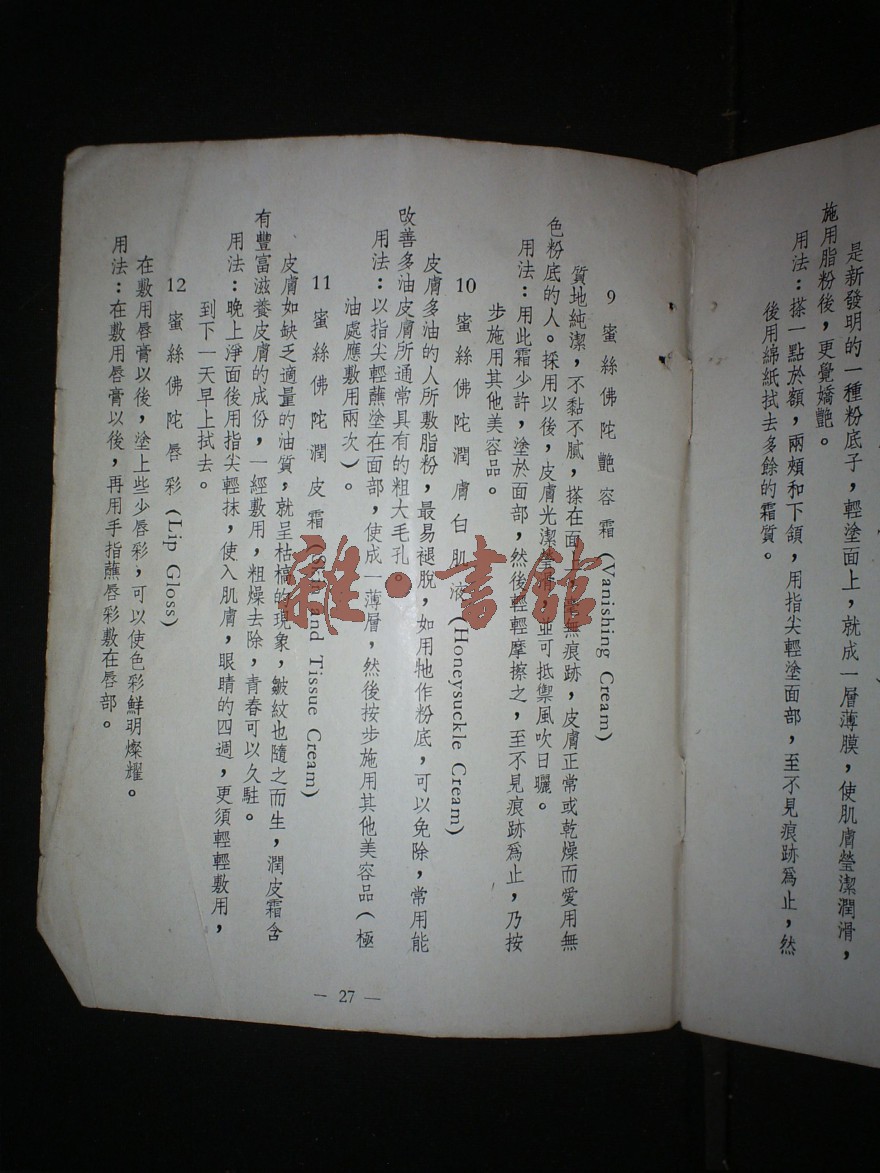 是新發明的一種粉底子，輕塗面上，就成一層薄膜，使肌膚瑩潔潤滑，
施用脂粉後，更覺嬌艷。
用法：搽一點於額，兩頰和下頷，用指尖輕塗面部，至不見痕跡爲止，然
後用綿紙拭去多餘的霜質。
9 蜜絲佛陀艷容霜 (Vanishing Cream)
質地純潔，不黏不膩，搽在面上，無痕跡，皮膚正常或乾燥而愛用無
色粉底的人。採用以後，皮膚光潔瑩，並可抵禦風吹日曬。
用法：用此霜少許，塗於面部，然後輕輕摩擦之，至不見痕跡爲止，乃按
步施用其他美容品。
10 蜜絲佛陀潤膚白肌液 (Honeysuckle Cream)
皮膚多油的人所敷脂粉，最易褪脫，如用牠作粉底，可以免除，常用能
改善多油皮膚所通常具有的粗大毛孔。
用法：以指尖輕蘸塗在面部，使成一薄層，然後按步施用其他美容品（極
油處應敷用兩次）。
11 蜜絲佛陀潤皮霜 (Skin and Tissue Cream)
皮膚如缺乏適量的油質，就呈枯槁的現象，皺紋也隨之而生，潤皮霜含
有豐富滋養皮膚的成份，一經敷用，粗燥去除，青春可以久駐。
用法：晚上淨面後用指尖輕抹，使入肌膚，眼睛的四週，更須輕輕敷用，
到下一天早上拭去。
12 蜜絲佛陀唇彩 (Lip Gloss)
在敷用唇膏以後，塗上些少唇彩，可以使色彩鮮明燦耀。
用法：在敷用唇膏以後，再用手指蘸唇彩敷在唇部。
— 27 —
雜·書館